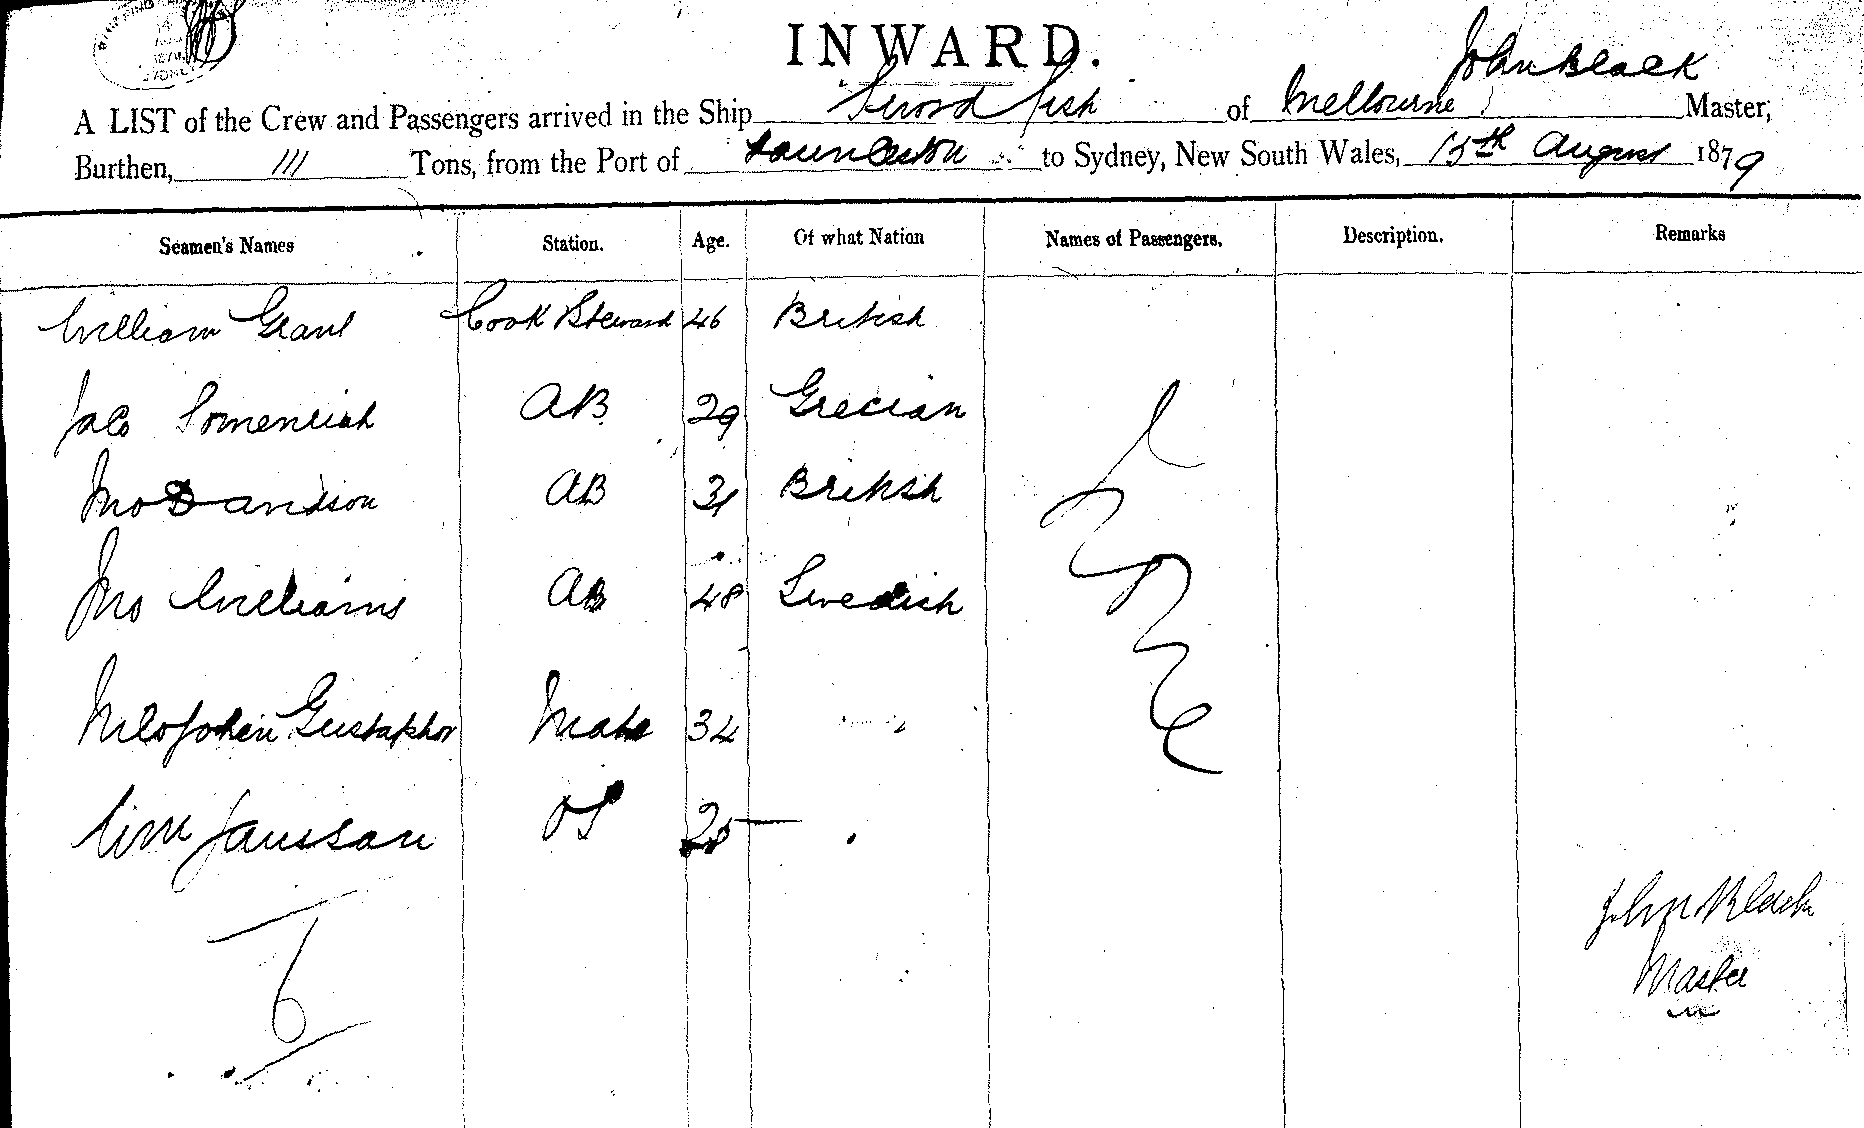 INWARD.
John Black
A LIST of the Crew and Passengers arrived in the Ship Sword fish of Melbourne Master,
Burthen, 111 Tons, from the Port of Launceston to Sydney, New South Wales, 15th August 1879
Seamen's Names Station. Age. Of what Nation Names of Passengers. Description. Remarks
William Grant Cook & Steward 46 British
Jac 29 AB Grecian
Jno Davidson AB 31 British
Jno Williams AB 48 Swedish
John Gustafson Mate 34
Wm Janssan OS 25
None
John Black
Master
6